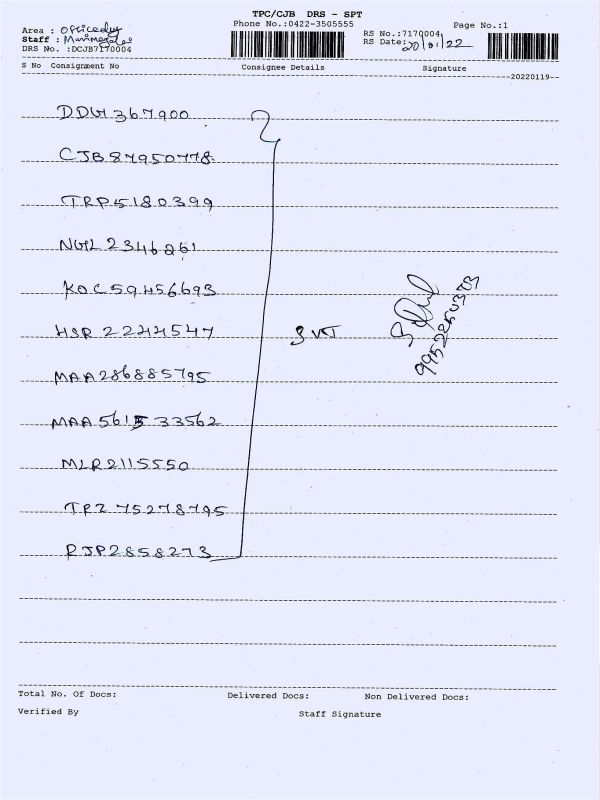 TPC/CJB DRS - SPT
Phone No.:0422-3505555
Page No.:1
Area :
Staff :
DRS No. :DCJB7170004
RS No.:7170004
RS Date: 20/01/22
S No Consignment No Consignee Details Signature
20220119
CJB87950778
TRP5180399
NGL2346261
KOC59456693
HSR2244547
MAA286885795
MAA561533562
MLR2115550
TPZ75278795
RJP2858273
Total No. Of Docs: Delivered Docs: Non Delivered Docs:
Verified By Staff Signature